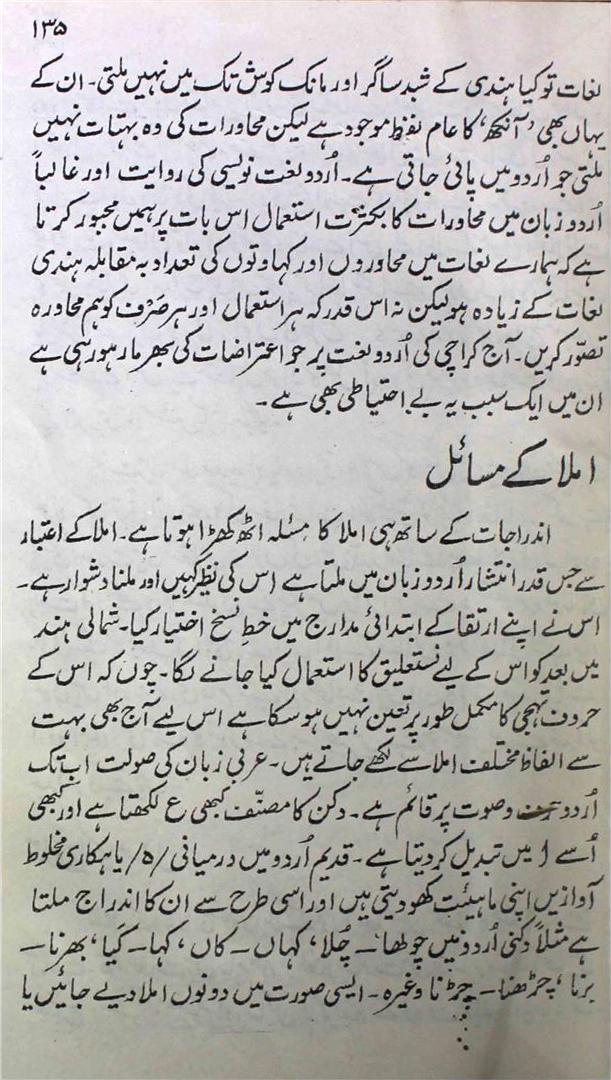 ۱۳۵
لغات تو کیا ہندی کے شبد ساگر اور مانک کوش تک میں نہیں ملتی۔ ان کے
یہاں بھی ’آنکھ‘ کا عام لفظ موجود ہے لیکن محاورات کی وہ بہتات نہیں
ملتی جو اُردو میں پائی جاتی ہے۔ اُردو لغت نویسی کی روایت اور غالباً
اُردو زبان میں محاورات کا بکثرت استعمال اس بات پر ہمیں مجبور کرتا
ہے کہ ہمارے لغات میں محاوروں اور کہاوتوں کی تعداد بہ مقابلہ ہندی
لغات کے زیادہ ہو لیکن نہ اس قدر کہ ہر استعمال اور ہر صَرف کو ہم محاورہ
تصوّر کریں۔ آج کراچی کی اُردو لغت پر جو اعتراضات کی بھرمار ہو رہی ہے
ان میں ایک سبب یہ بے احتیاطی بھی ہے۔
املا کے مسائل
اندراجات کے ساتھ ہی املا کا مسئلہ اٹھ کھڑا ہوتا ہے۔ املا کے اعتبار
سے جس قدر انتشار اُردو زبان میں ملتا ہے اس کی نظیر کہیں اور ملنا دشوار ہے۔
اس نے اپنے ارتقا کے ابتدائی مدارج میں خطِ نسخ اختیار کیا۔ شمالی ہند
میں بعد کو اس کے لیے نستعلیق کا استعمال کیا جانے لگا۔ چوں کہ اس کے
حروف تہجی کا مکمل طور پر تعین نہیں ہو سکا ہے اس لیے آج بھی بہت
سے الفاظ مختلف املا سے لکھے جاتے ہیں۔ عربی زبان کی صولت اب تک
اُردو وصوت پر قائم ہے۔ دکن کا مصنّف کبھی ع لکھتا ہے اور کبھی
اُسے ا میں تبدیل کر دیتا ہے۔ قدیم اُردو میں درمیانی /ہ/ یا ہکاری مخلوط
آوازیں اپنی ماہیئت کھو دیتی ہیں اور اسی طرح سے ان کا اندراج ملتا
ہے مثلاً دکنی اُردو میں چولھا۔ چُلا، کہاں۔ کاں، کہا۔ کَیا، بھرنا۔
برنا، چڑھنا۔ چڑنا وغیرہ۔ ایسی صورت میں دونوں املا دیے جائیں یا